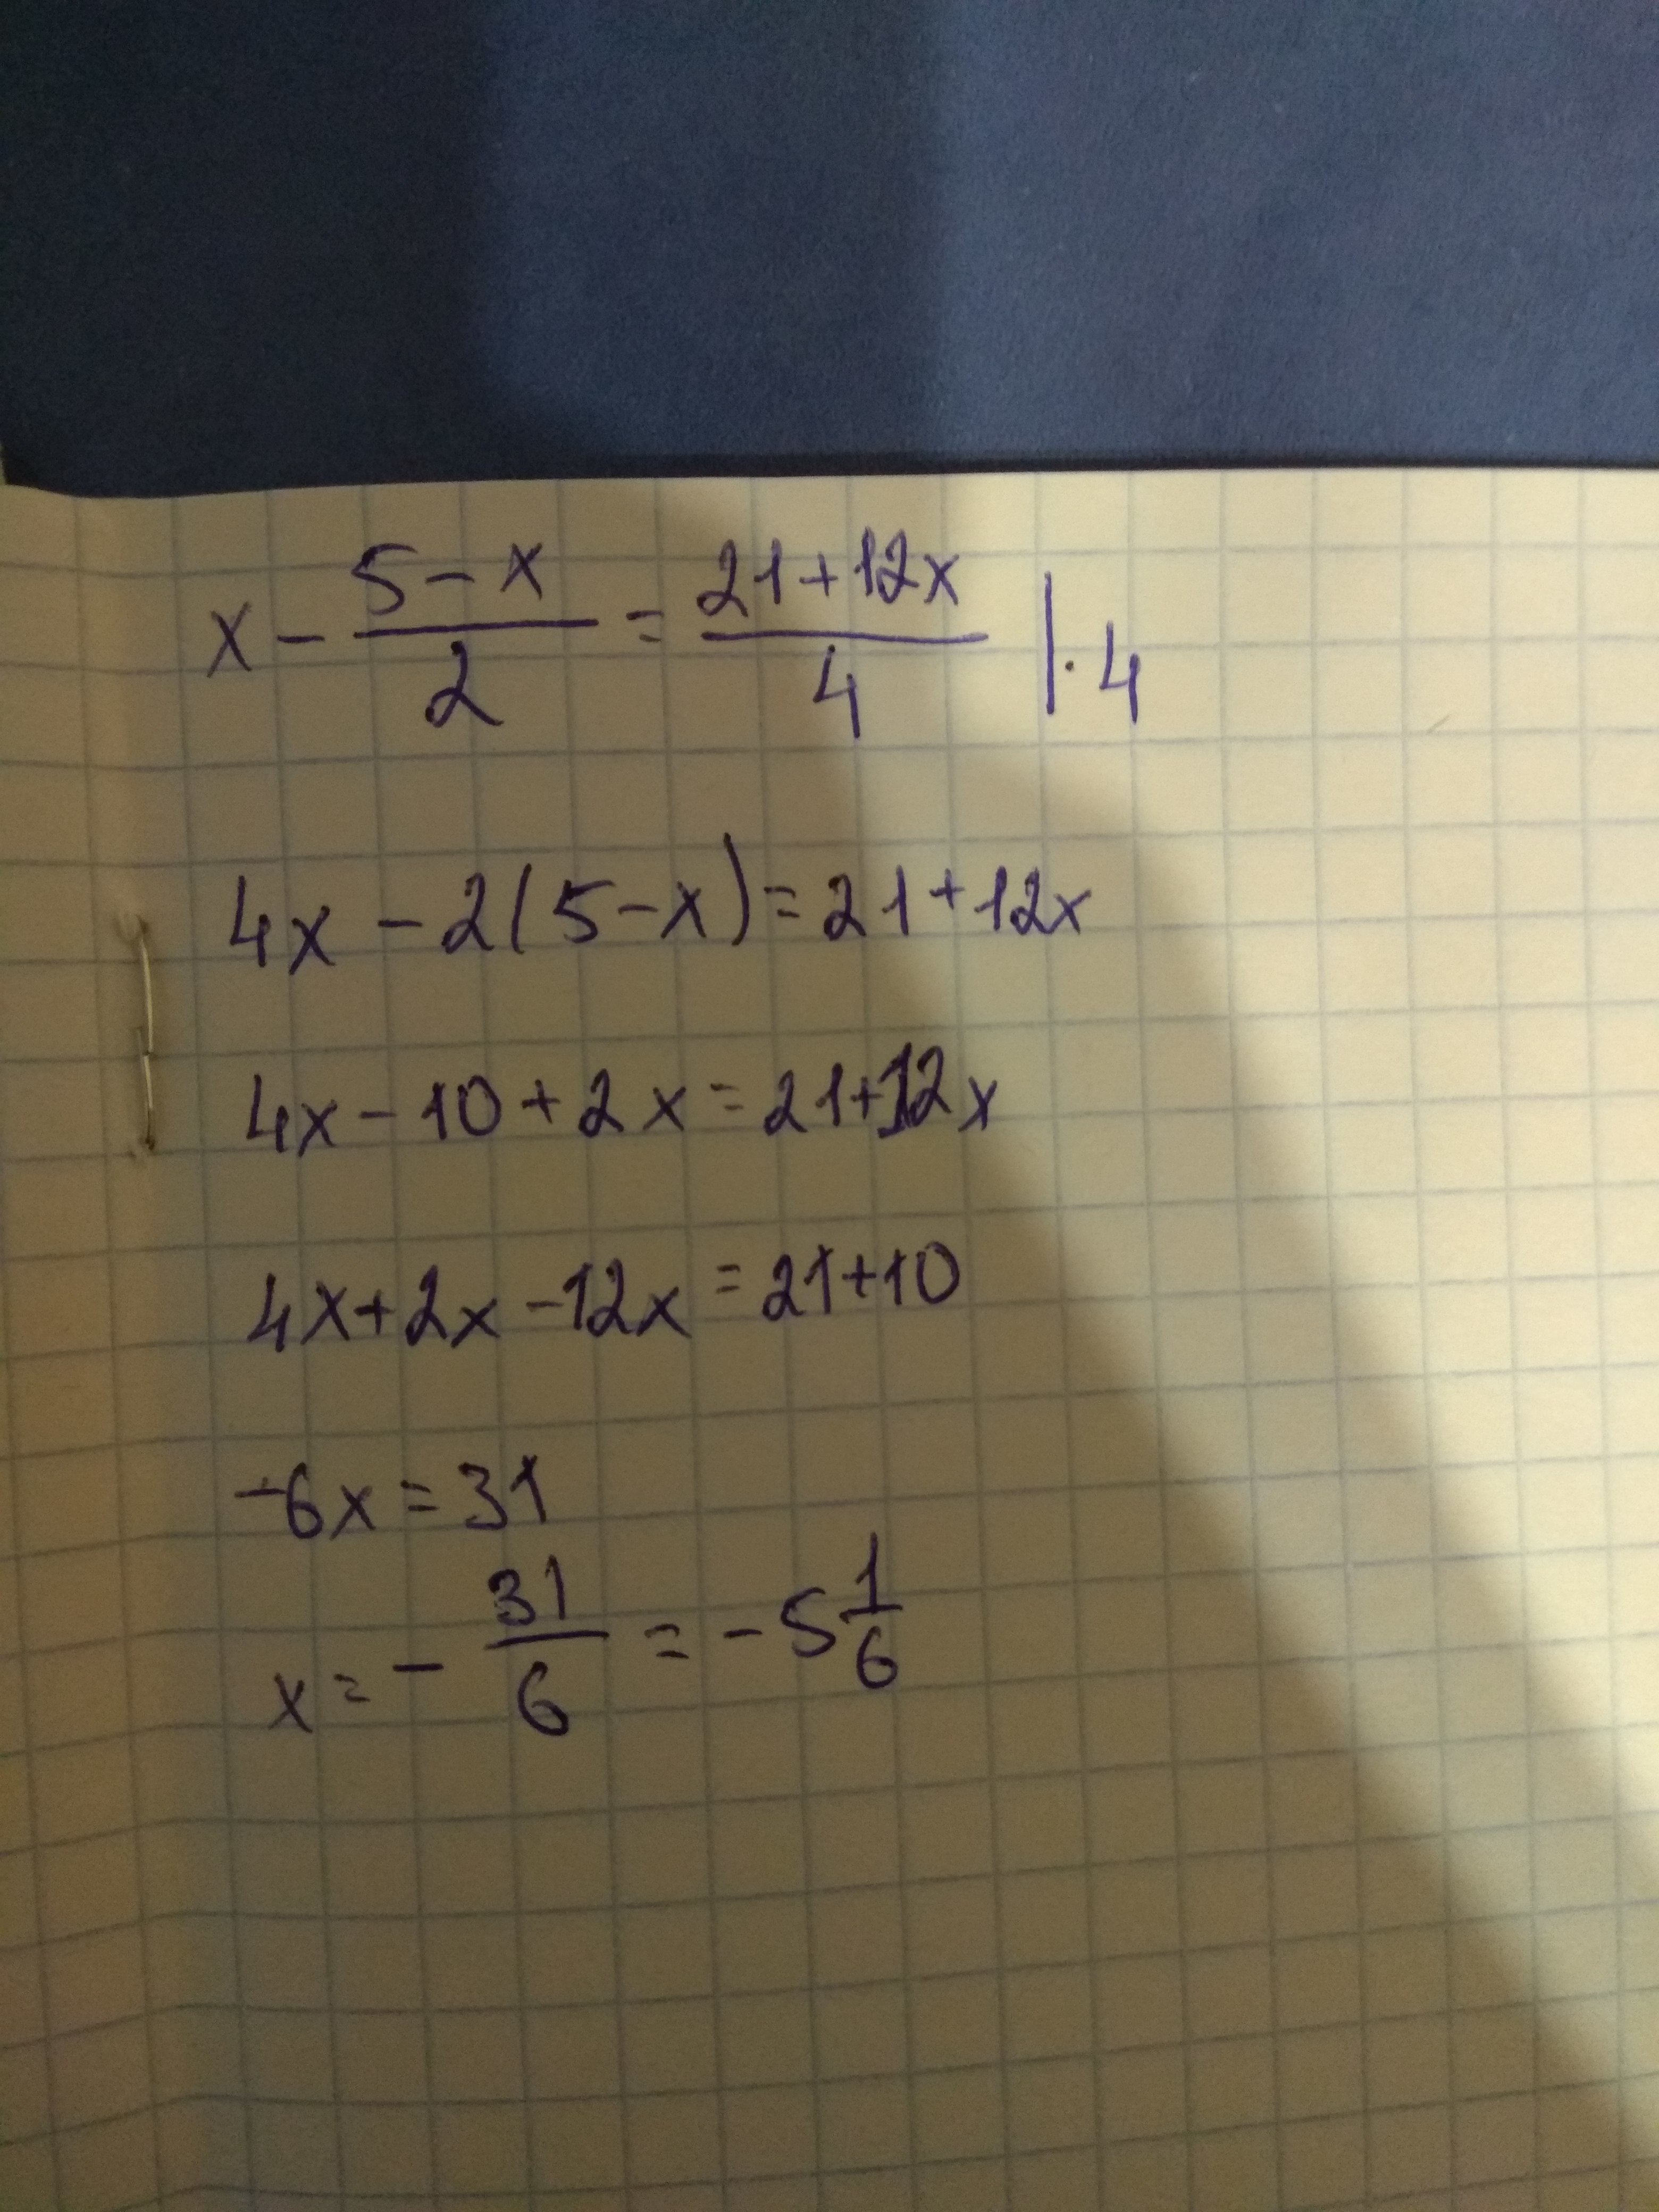 x - (5-x)/2 = (21+12x)/4 |·4
4x - 2(5-x) = 21+12x
4x - 10 + 2x = 21+12x
4x+2x-12x = 21+10
-6x = 31
x = - 31/6 = -5 1/6